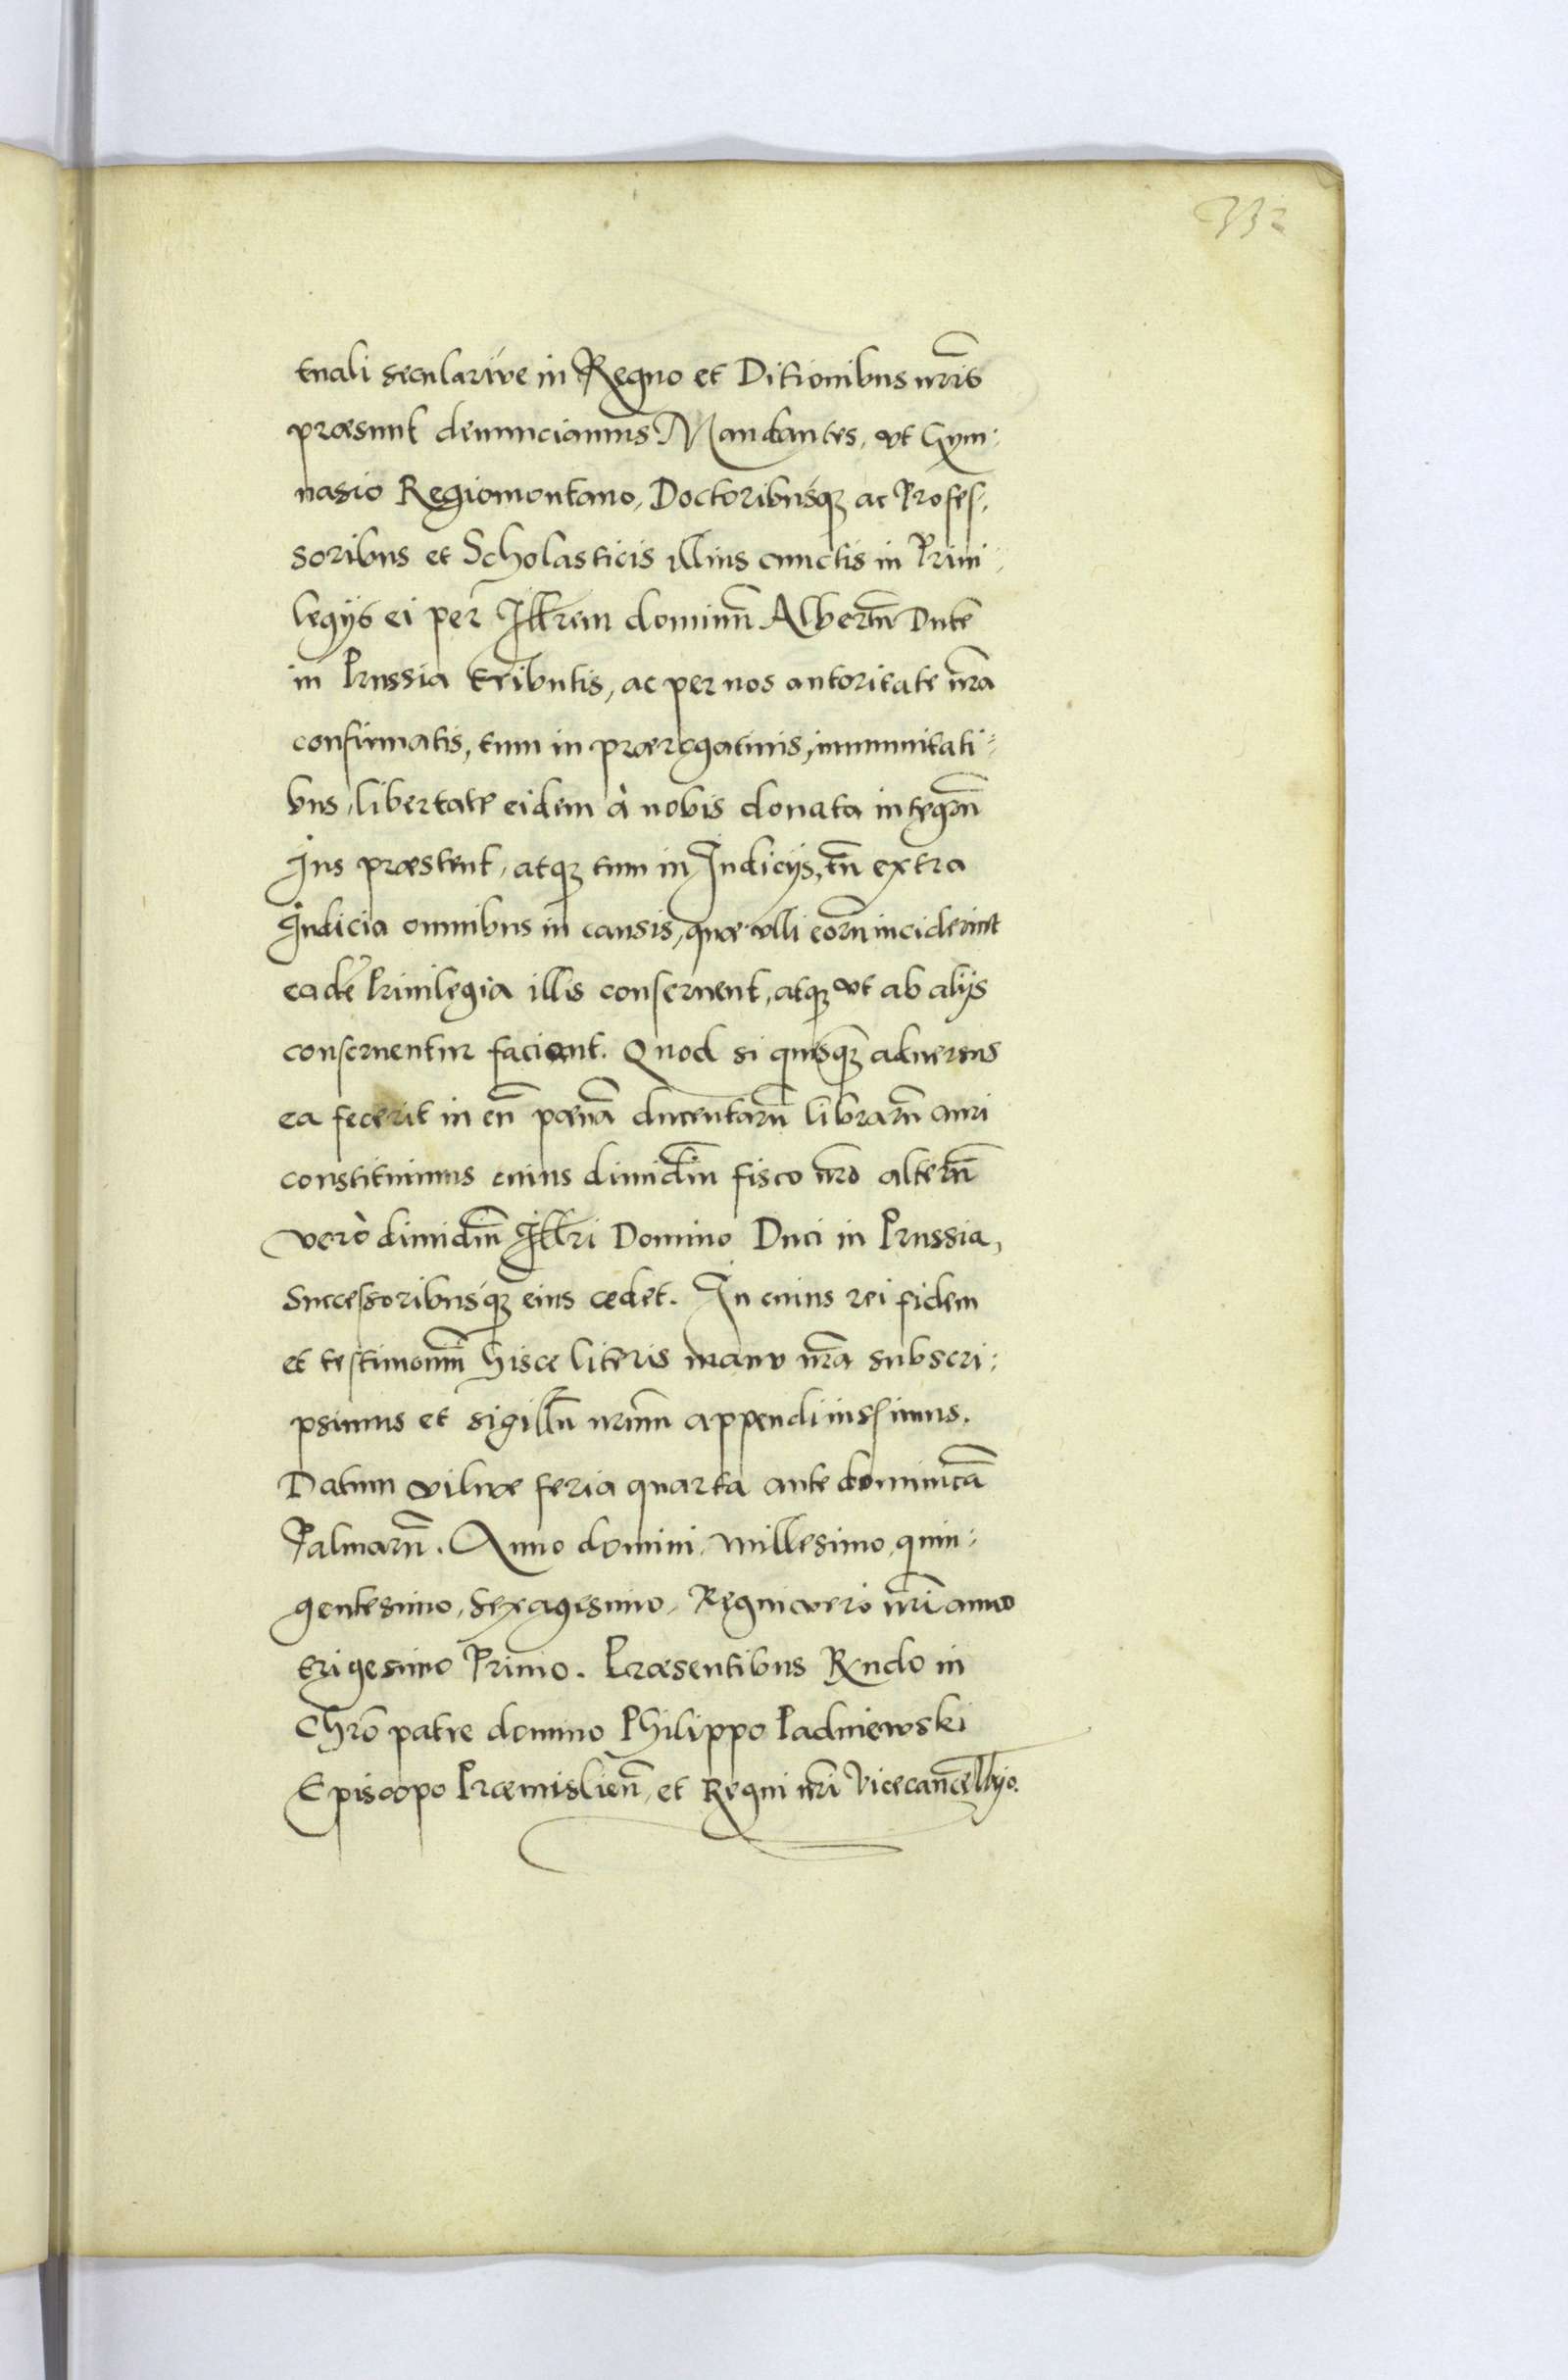 tuali secularive in Regno et Ditionibus nr̃is
præsunt denunciamus Mandantes, vt Gym:
nasio Regiomontano, Doctoribúsqꝫ ac Profes,
soribus et Scholasticis illius cunctis in Priui,
legijs ei per Illrem dominũ Albertũ Ducẽ
in Prussia tributis, ac per nos autoritate nr̃a
confirmatis, tum in prærogatiuis, immunitati=
bus, libertate eidem à nobis donata integrũ
Ius præstent, atqꝫ tum in Iudicijs, tũ extra
Iudicia omnibus in causis, quæ vlli eorũ inciderint
eadẽ Priuilegia illis conseruent, atqꝫ vt ab alijs
conseruentur faciant. Quod si quisqꝫ aduersus
ea fecerit in eũ pænã ducentarũ librarũ auri
constituimus cuius dimidiũ fisco nr̃o alterũ
verò dimidiũ Illri Domino Duci in Prussia,
Successoribúsqꝫ eius cedet. In cuius rei fidem
et testimoniũ hisce literis manu nr̃a subscri:
psimus et sigillũ nrũm appendi iussimus.
Datum vilnæ feria quarta ante dominicã
Palmarũ. Anno domini, millesimo, quin=
gentesimo, Sexagesimo, Regni vero nr̃i anno
trigesimo Primo. Præsentibus Rndo in
Chrõ patre domino Philippo Padniewski
Episcopo Præmisliẽn, et Regni nr̃i Vicecancellrjo.